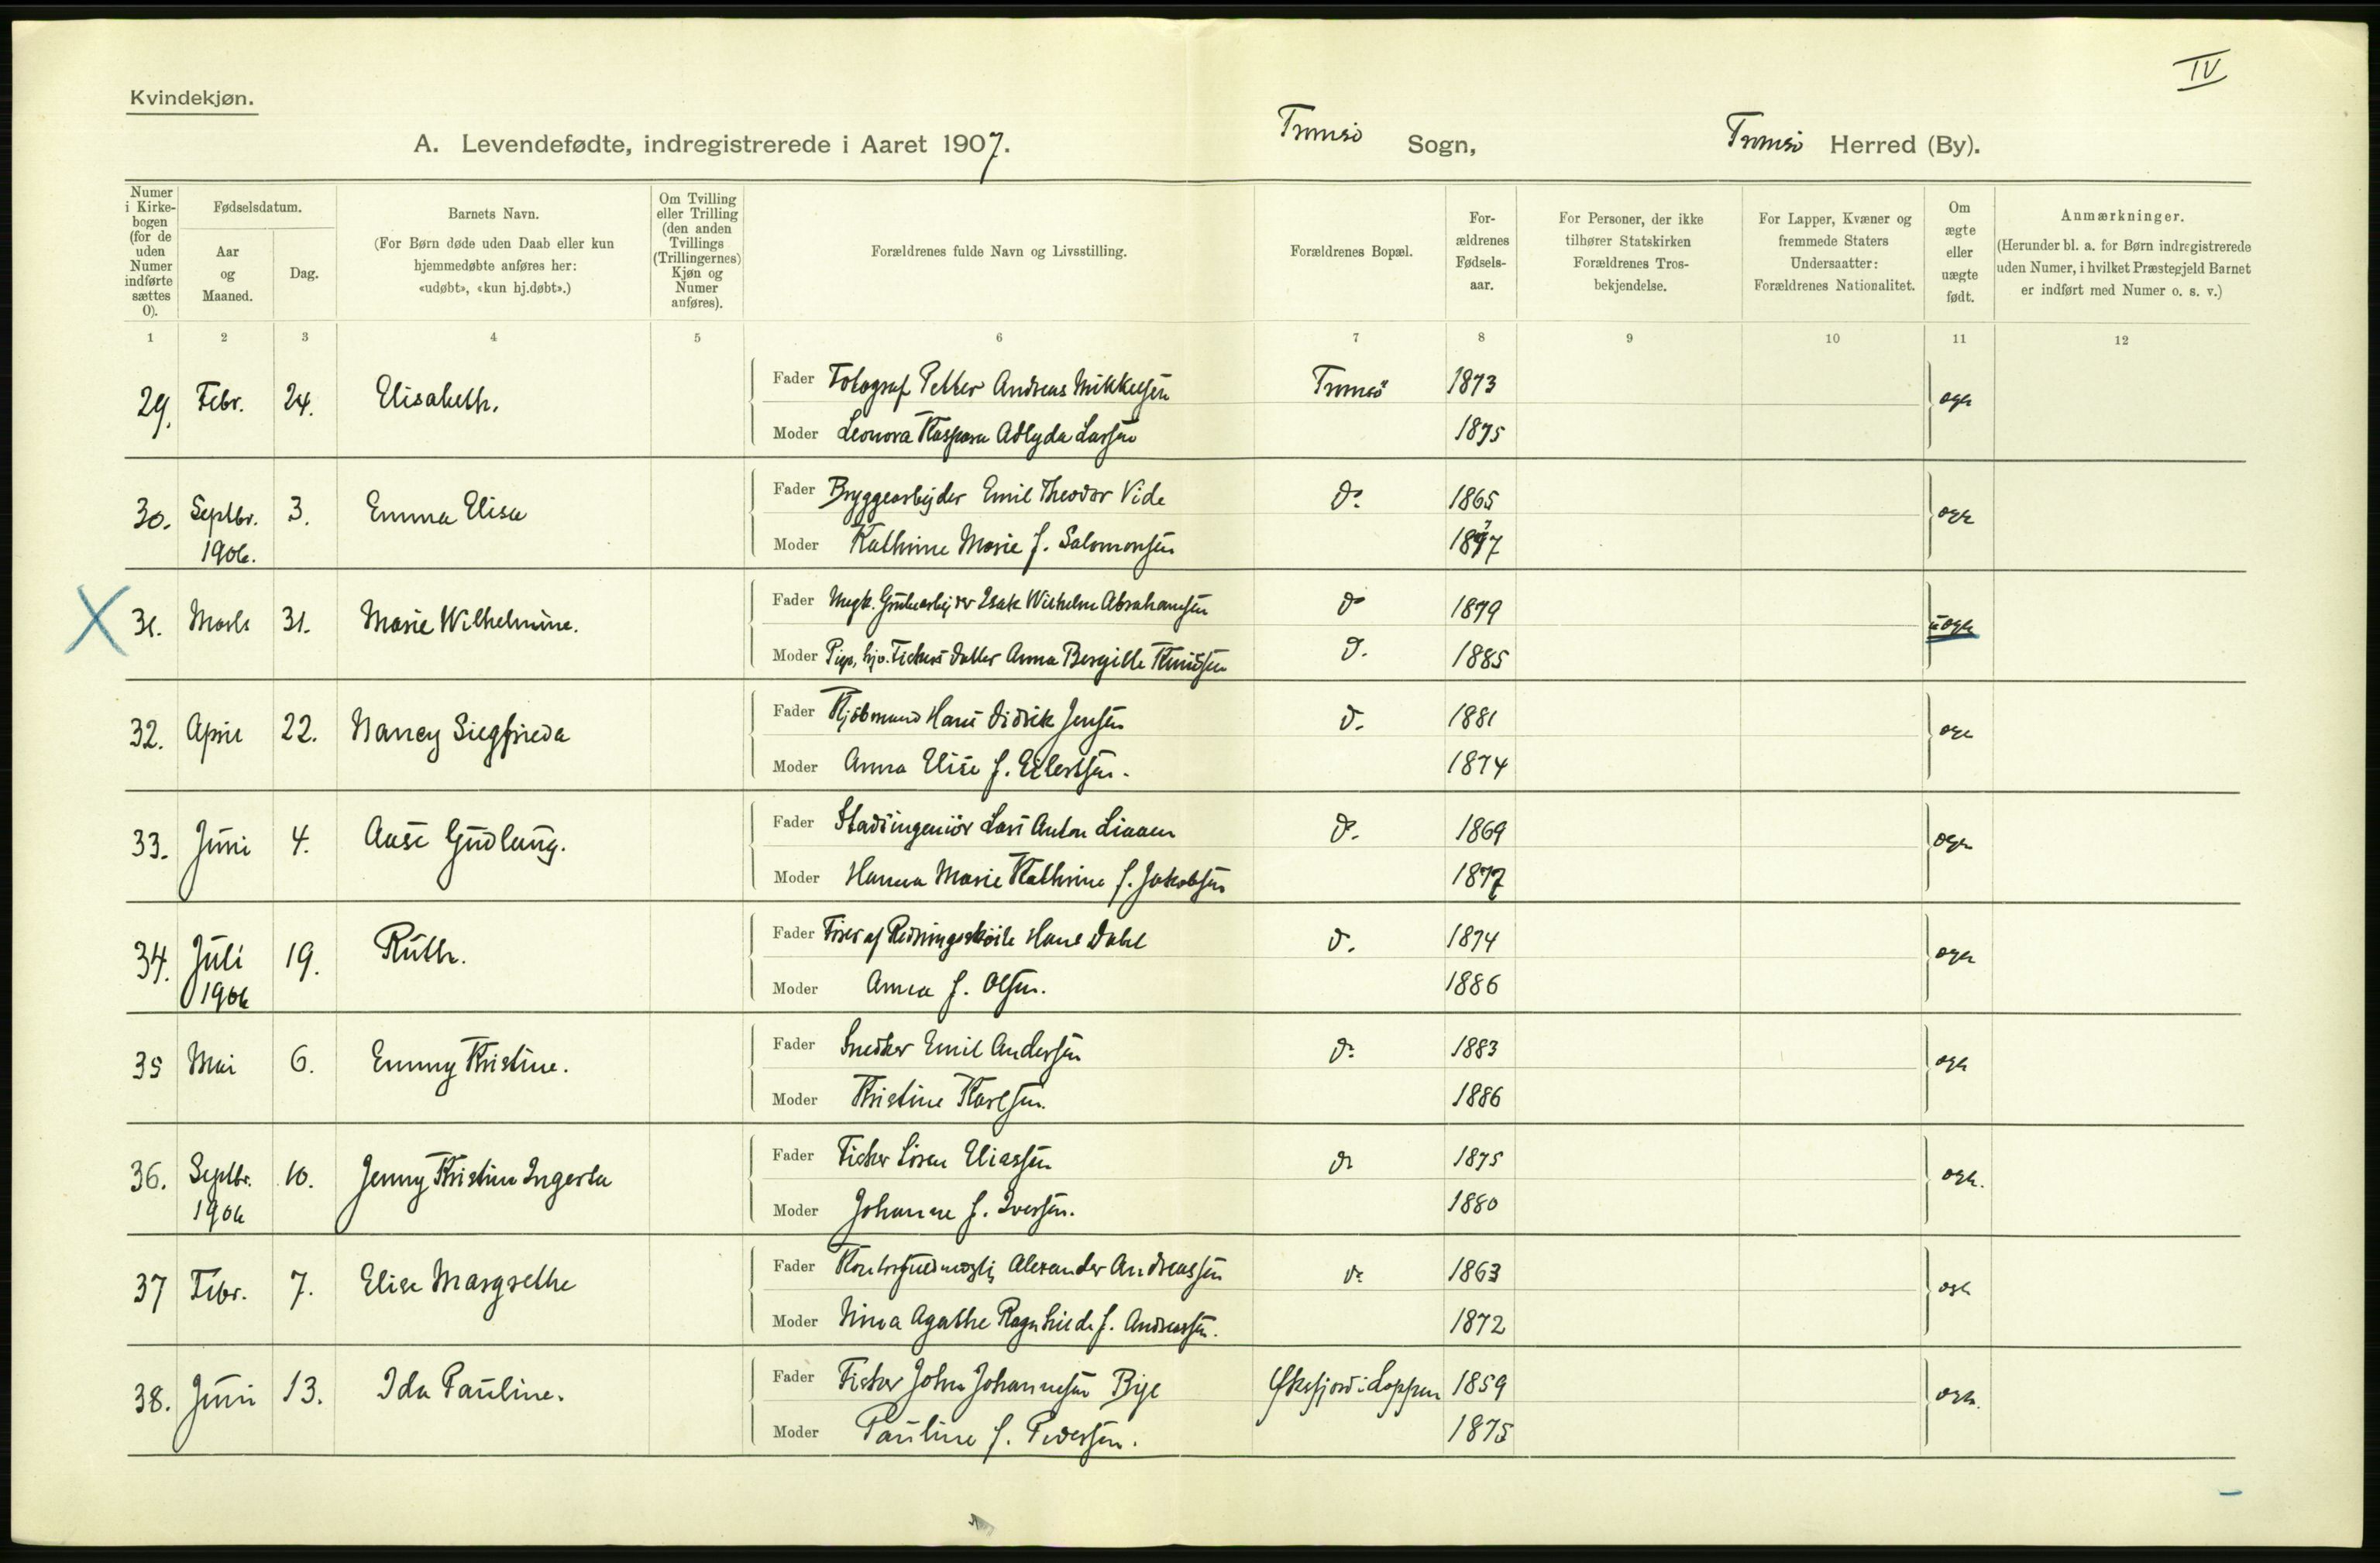 IV
Kvindekjøn.
A. Levendefødte, indregistrerede i Aaret 1907. Tromsø Sogn, Tromsø Herred (By).
Numer i Kirkebogen (for de uden Numer indførte sættes 0).
Fødselsdatum.
Aar og Maaned.
Dag.
Barnets Navn.
(For Børn døde uden Daab eller kun hjemmedøbte anføres her: «udøbt», «kun hj.døbt».)
Om Tvilling eller Trilling (den anden Tvillings (Trillingernes) Kjøn og Numer anføres).
Forældrenes fulde Navn og Livsstilling.
Forældrenes Bopæl.
For-ældrenes Fødsels-aar.
For Personer, der ikke tilhører Statskirken Forældrenes Tros-bekjendelse.
For Lapper, Kvæner og fremmede Staters Undersaatter: Forældrenes Nationalitet.
Om ægte eller uægte født.
Anmærkninger.
(Herunder bl. a. for Børn indregistrerede uden Numer, i hvilket Præstegjeld Barnet er indført med Numer o. s. v.)
1 2 3 4 5 6 7 8 9 10 11 12
29. Febr. 24. Elisabeth. Fader Fotograf Petter Andreas Mikkelsen Tromsö 1873 ægte
Moder Leonora Kaspara Adlyda Larsen 1875
30. Septbr. 1906. 3. Emma Elisa Fader Bryggearbejder Emil Theodor Vide do 1865 ægte
Moder Kathrine Marie f. Salomonsen 1877
31. Marts 31. Marie Wilhelmine. Fader Ungk. Grubearbejder Isak Wilhelm Abrahamsen do 1879 uægte
Moder Pige, hjv. Fiskers Datter Anna Bergitte Knudsen d. 1885
32. April 22. Nancy Siegfrieda Fader Kjøbmand Hans Didrik Jensen d. 1881 ægte
Moder Anna Elise f. Eilertsen. 1874
33. Juni 4. Aase Gudlaug. Fader Stadsingeniör Lars Anton Liaaen do. 1869 ægte
Moder Hanna Marie Kathrine f. Jakobsen 1877
34. Juli 1906 19. Ruth. Fader Fører af Redningsskøite Hans Dahl d. 1874 ægte
Moder Anna f. Olsen. 1886
35 Mai 6. Emmy Kristine. Fader Snedker Emil Andersen do 1883 ægte
Moder Kristine Karlsen. 1886
36. Septbr. 1906 10. Jenny Kristine Ingerta Fader Fisker Sören Eliassen do 1875 ægte.
Moder Johanne f. Iversen. 1880
37 Febr. 7. Elise Margrethe Fader Alexander Andreassen do 1863 ægte
Moder Nina Agathe Ragnhilde f. Andreassen. 1872
38. Juni 13. Ida Pauline. Fader Fisker John Johannesen Bije Øksfjord i Loppen 1859 ægte.
Moder Pauline f. Pedersen. 1875